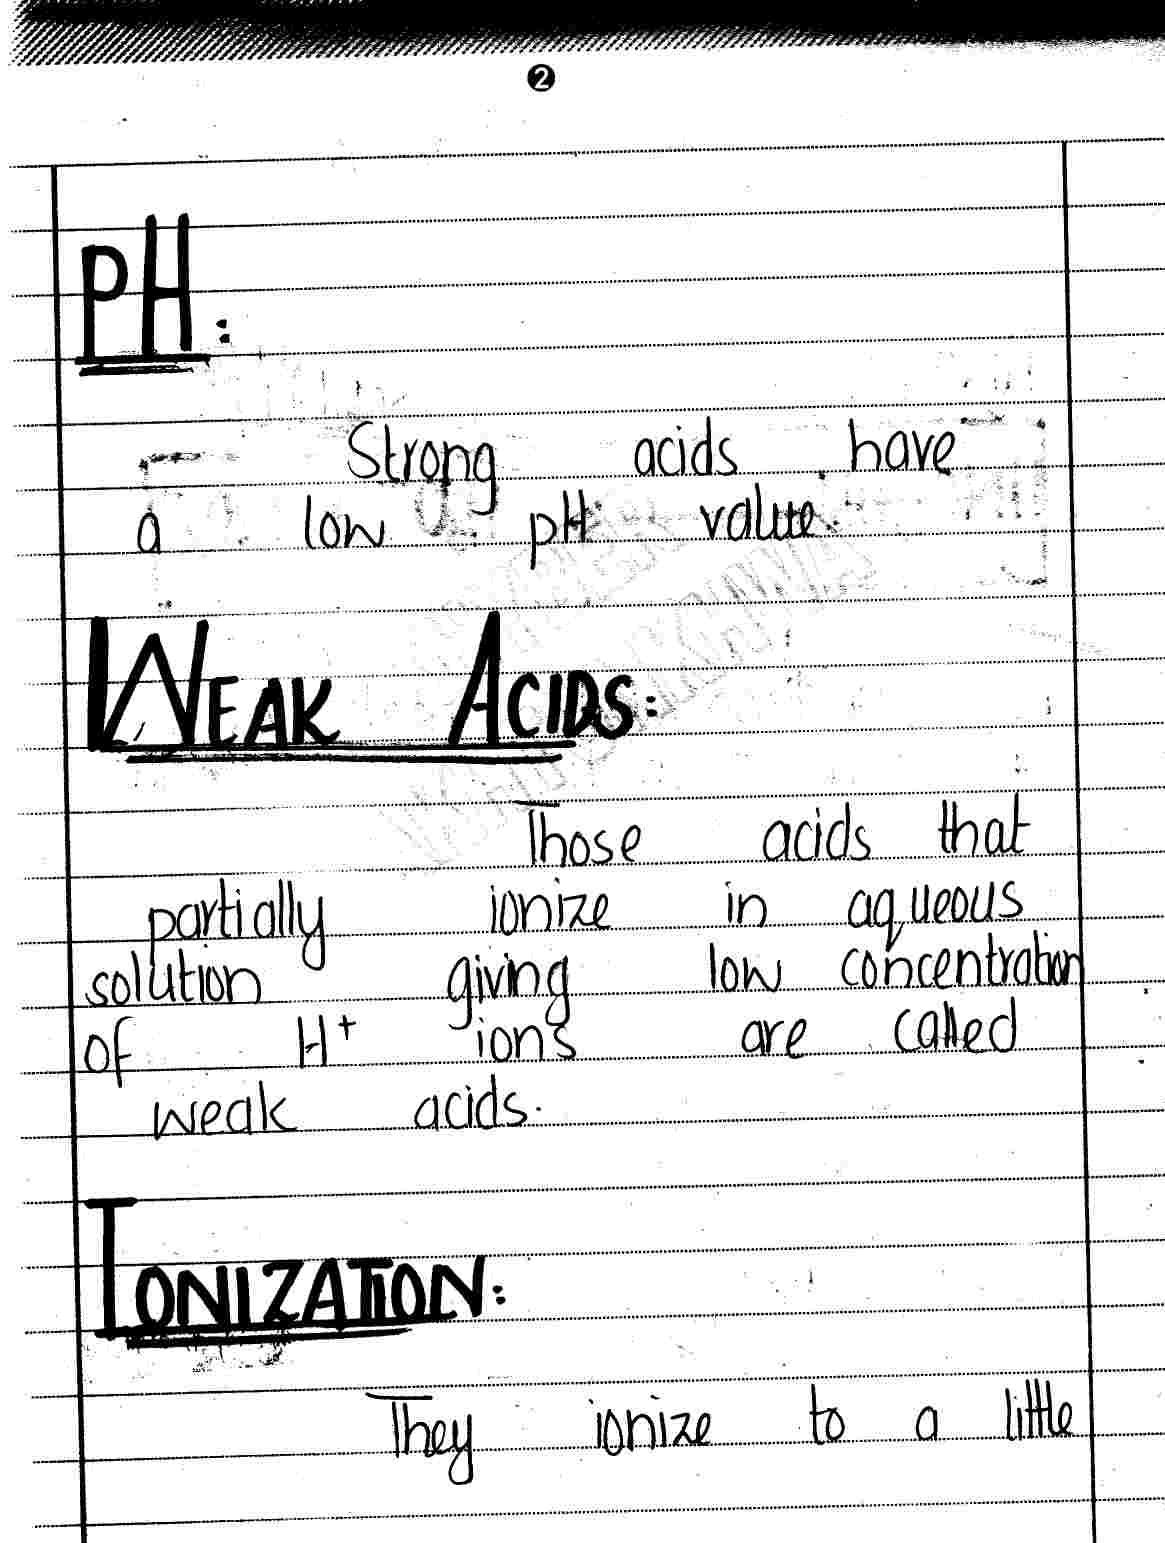 2
pH:
Strong acids have
a low pH value.
WEAK ACIDS:
Those acids that
partially ionize in aqueous
solution giving low concentration
of H⁺ ions are called
weak acids.
IONIZATION:
They ionize to a little